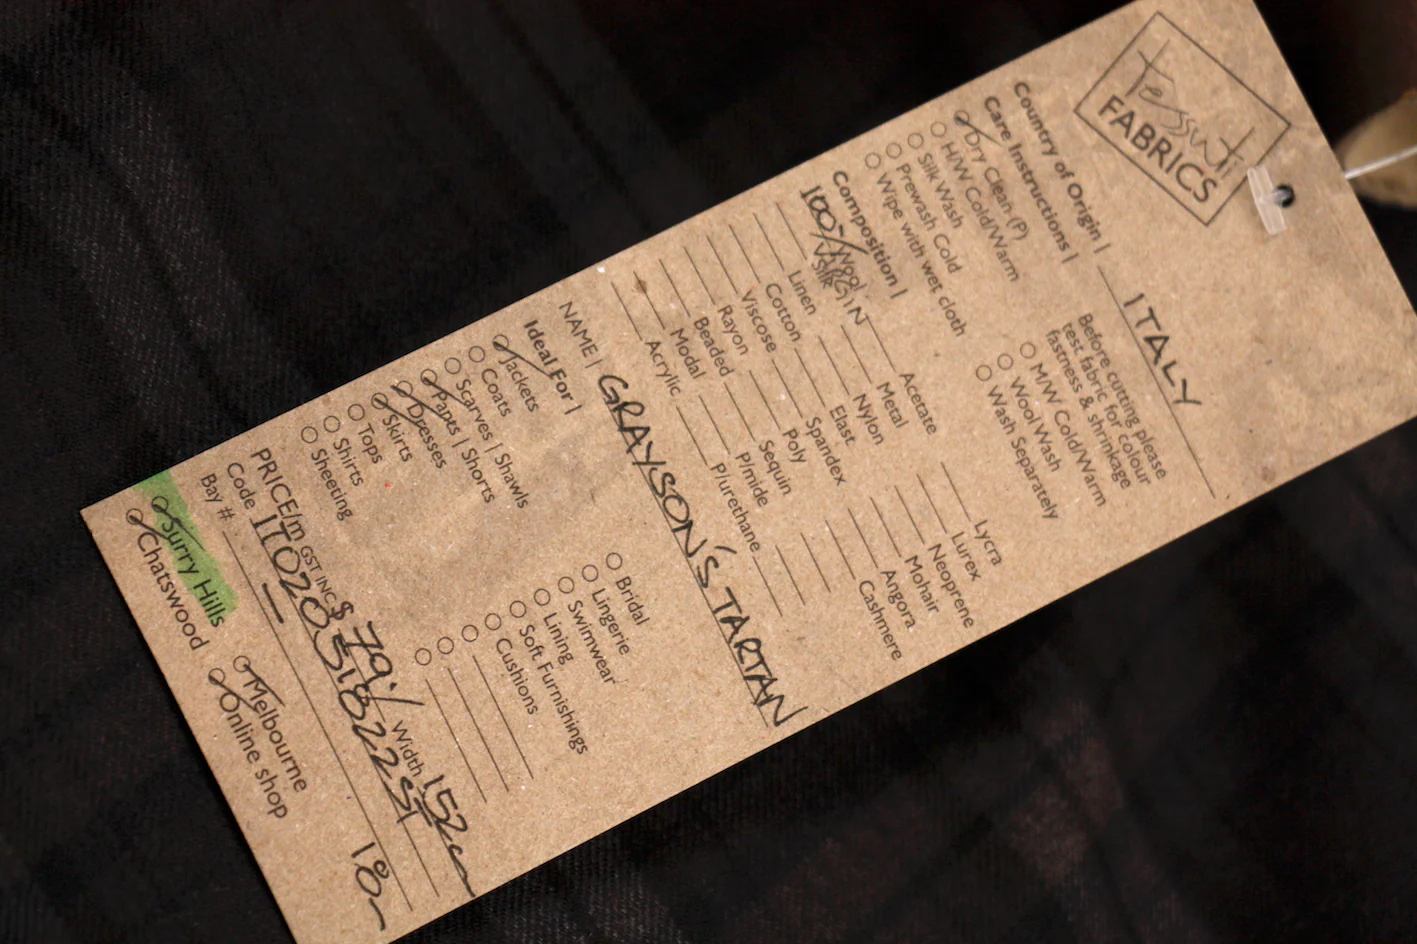 tessuti
FABRICS
Country of Origin | ITALY
Care Instructions |
Before cutting please
test fabric for colour
fastness & shrinkage
Dry Clean (P)
H/W Cold/Warm
Silk Wash
Prewash Cold
Wipe with wet cloth
M/W Cold/Warm
Wool Wash
Wash Separately
Composition |
100% Wool VIRGIN
Silk
Linen
Cotton
Viscose
Rayon
Beaded
Modal
Acrylic
Acetate
Metal
Nylon
Elast
Spandex
Poly
Sequin
P/mide
P/urethane
Lycra
Lurex
Neoprene
Mohair
Angora
Cashmere
NAME | GRAYSON'S TARTAN
Ideal For |
Jackets
Coats
Scarves | Shawls
Pants | Shorts
Dresses
Skirts
Tops
Shirts
Sheeting
Bridal
Lingerie
Swimwear
Lining
Soft Furnishings
Cushions
PRICE/m GST INC $ 79 Width 152cm
Code
Bay #
Surry Hills
Chatswood
Melbourne
Online shop